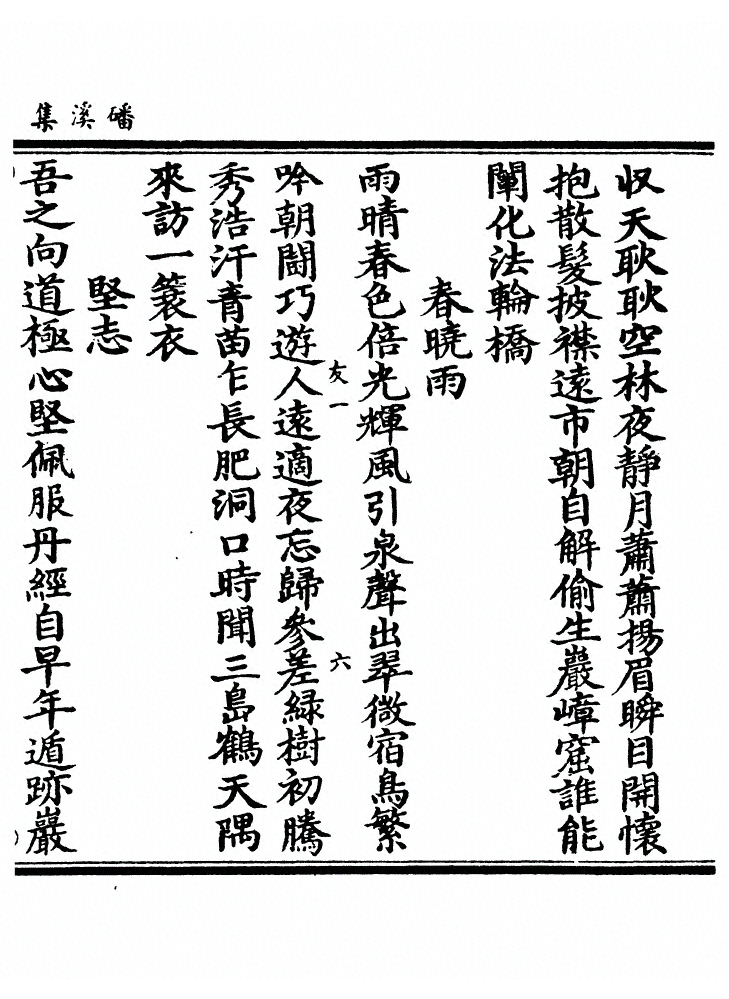 磻溪集
収天耿耿空林夜靜月蕭蕭揚眉瞬目開懷
抱散髮披襟遠市朝自解偷生巖嶂窟誰能
闡化法輪橋
春曉雨
雨晴春色倍光輝風引泉聲出翠微宿鳥繁
友一
六
吟朝鬪巧遊人遠適夜忘歸參差緑樹初騰
秀浩汗青苗乍長肥洞口時聞三島鶴天隅
來訪一簑衣
堅志
吾之向道極心堅佩服丹經自早年遁跡巖